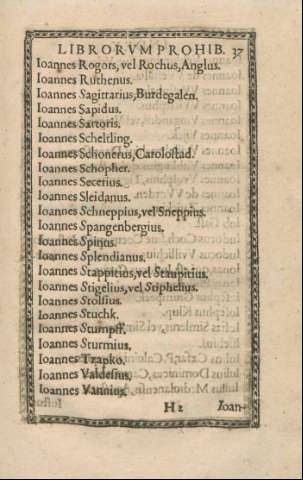 LIBRORVM PROHIB. 37
Ioannes Rogors, vel Rochus, Anglus.
Ioannes Ruthenus.
Ioannes Sagittarius, Burdegalen.
Ioannes Sapidus.
Ioannes Sartoris.
Ioannes Scheltling.
Ioannes Schonerus, Carolostad.
Ioannes Schopher.
Ioannes Secerius.
Ioannes Sleidanus.
Ioannes Schneppius, vel Sneppius.
Ioannes Spangenbergius.
Ioannes Spinus.
Ioannes Splendianus.
Ioannes Stappitius, vel Staupitius.
Ioannes Stigelius, vel Stiphelius.
Ioannes Stolsius.
Ioannes Stuchk.
Ioannes Stumpff.
Ioannes Sturmius.
Ioannes Tzapko.
Ioannes Valdesius.
Ioannes Vannius.
H 2 Ioan-